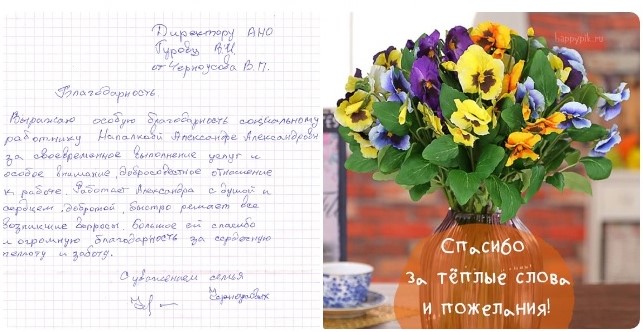 Директору АНО
Гуровц В.И.
от Черноусова В.П.
Благодарность
Выражаю особую благодарность социальному
работнику Напалковой Александре Александровне
за своевременное выполнение услуг и
особое внимание, добросовестное отношение
к работе. Работает Александра с душой и
сердцем, добротой, быстро решает все
возникшие вопросы. Большое ей спасибо
и огромную благодарность за сердечную
теплоту и заботу.
С уважением семья
Черноусовых
happypik.ru
Спасибо
за тёплые слова
и пожелания!